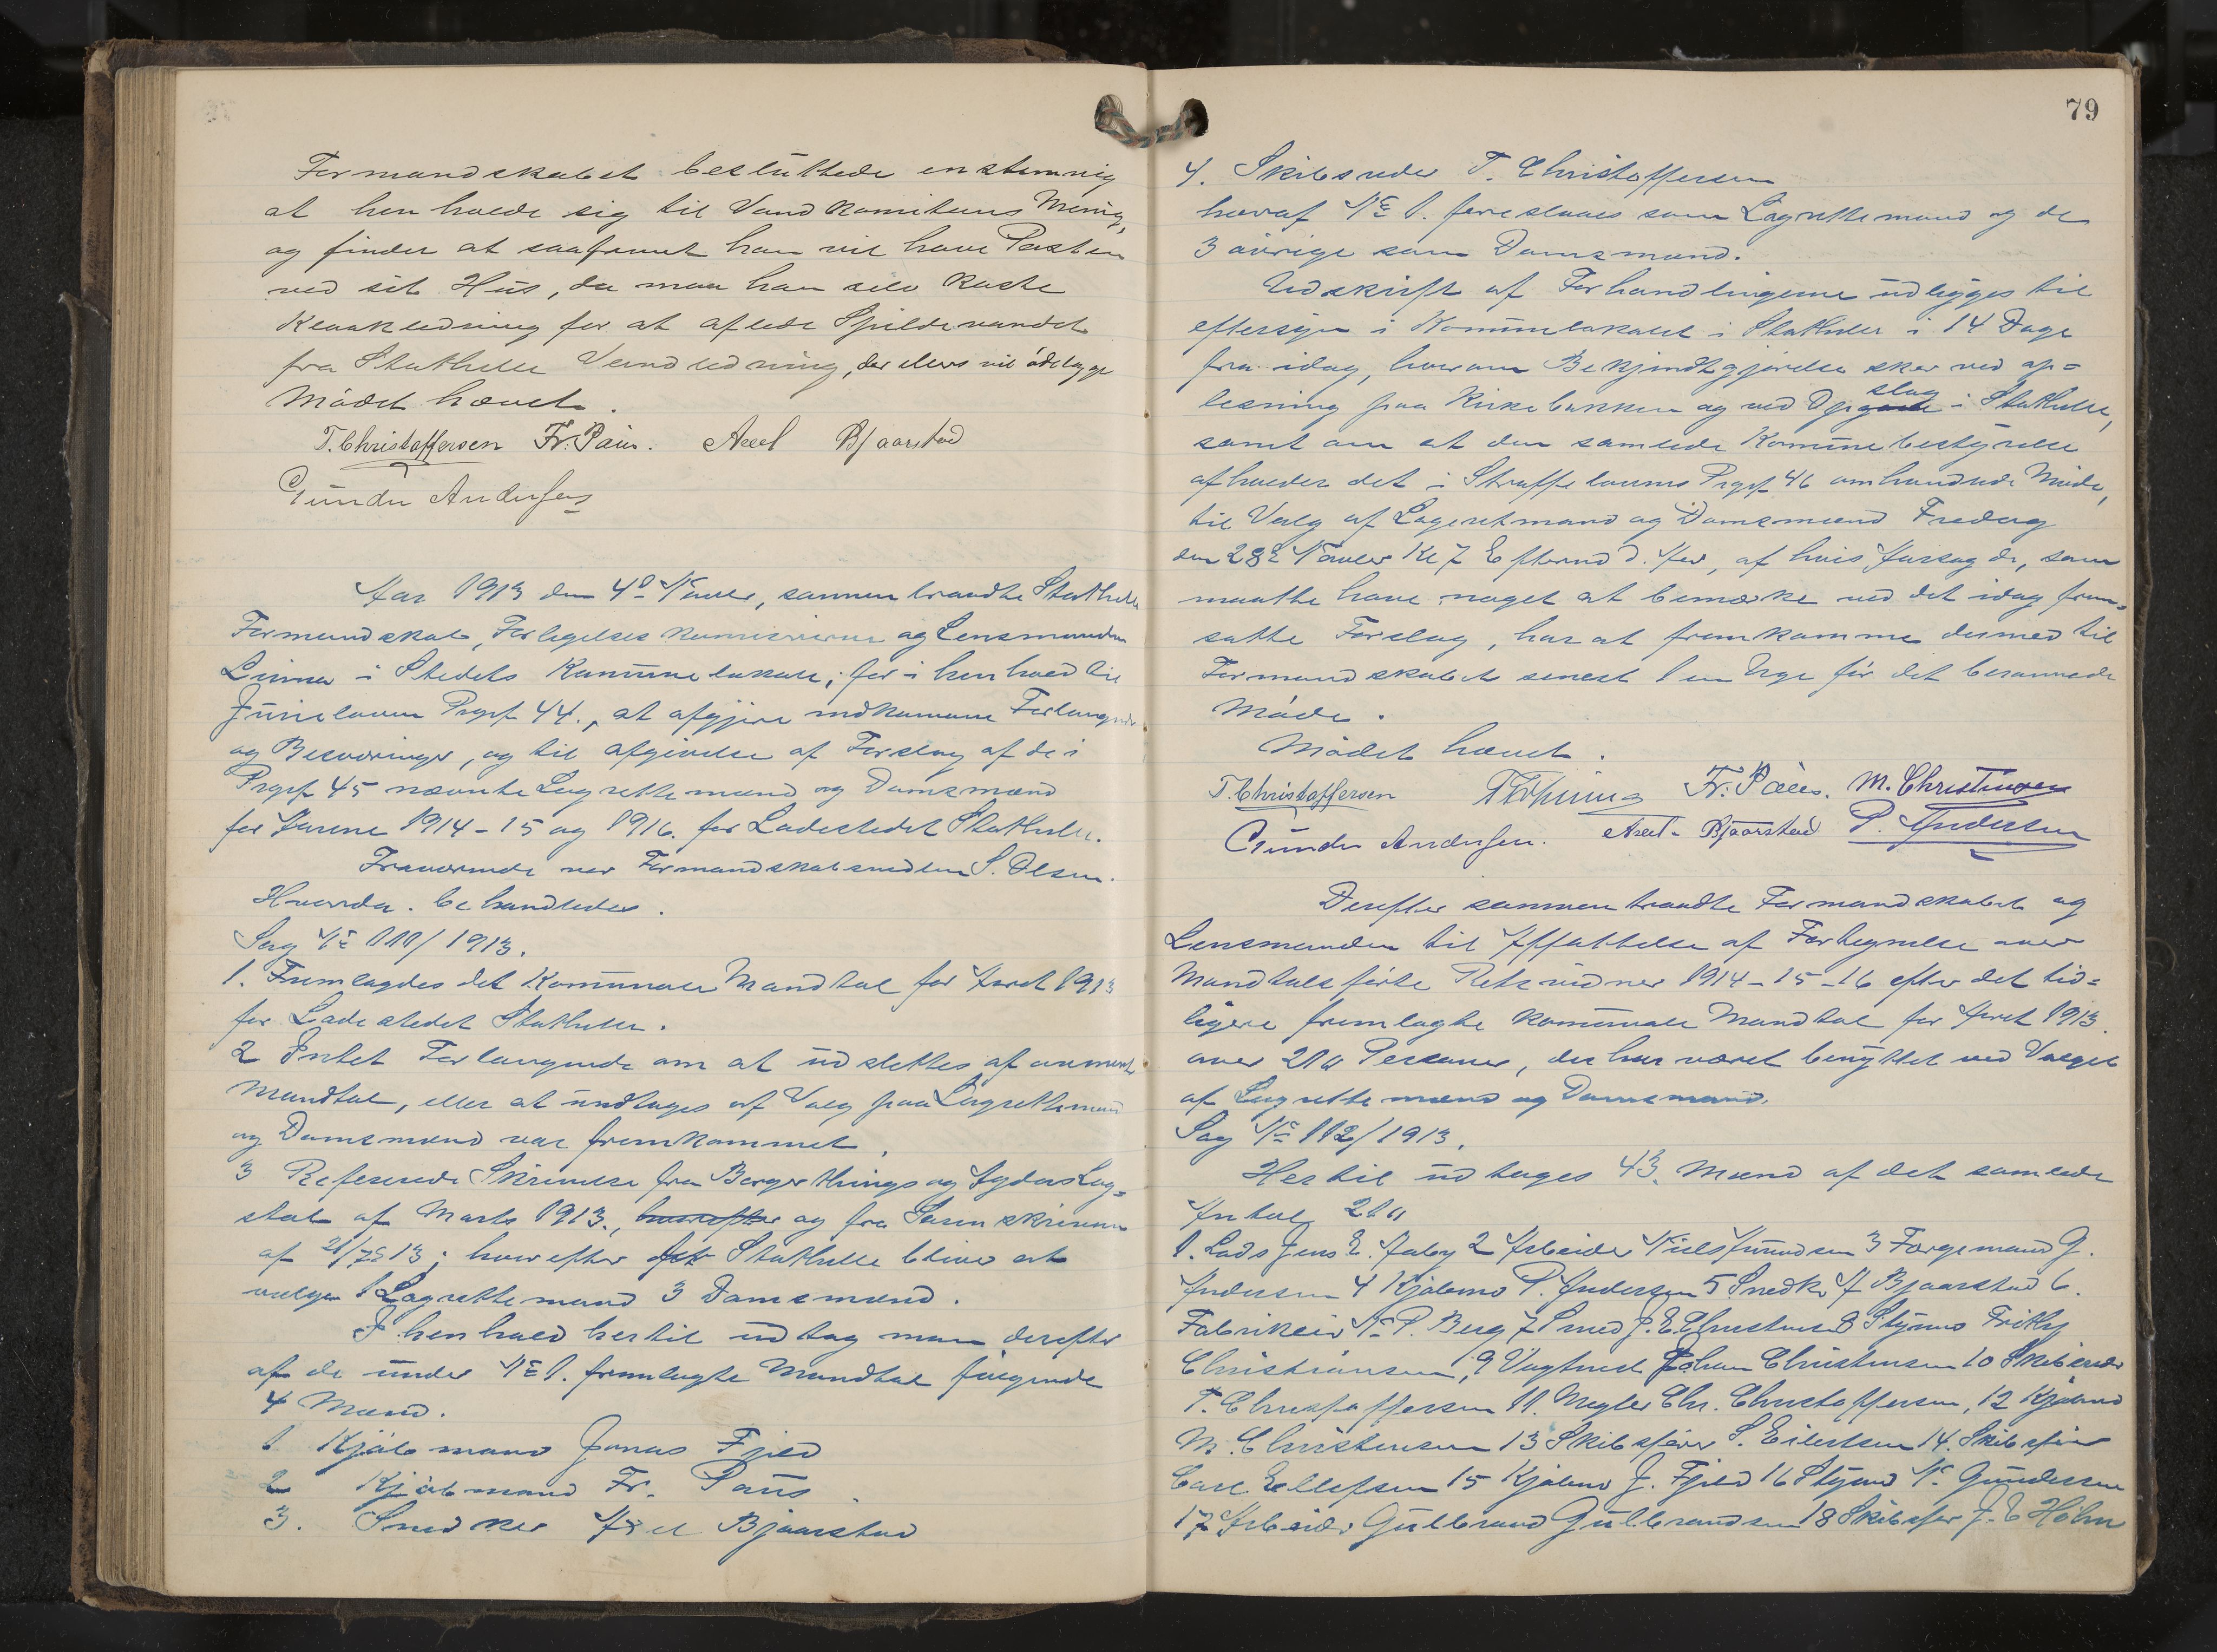 Formandskabet besluttede enstemmig
at henholde sig til Vandkomiteens Mening,
og finder at saafremt han vil have Posten
ved sit Hus, da maa han selv koste
Kloakledning for at aflede Spildevandet
fra Stathelle Vandledning, der ellers vil ödelægge
Mödet hævet.
T. Christoffersen Fr. Paus. Axel Bjaarstad
Gunder Andersen
Aar 1913 den 4de Novbr, sammentraadte Stathelle
Formandskab, Forligelseskommisærerne og Lensmanden
i Stedets Kommunelokale; for i henhold til
Jurieloven Prgrf 44., at afgjöre indkomne Forlangende
og Besværinger, og til afgivelse af Forslag af de i
Prgrf 45 nævnte Lagrettemænd og Domsmænd
for Aarene 1914-15 og 1916. for Ladestedet Stathelle.
Fraværende var Formandskabsmedlem S. Olsen.
Hvorda. behandledes.
Sag No 111/1913.
1. Fremlagdes det Kommunale Mandtal for Aaret 1913
for Ladestedet Stathelle.
2 Intet Forlangende om at udslettes af
Mandtal, eller at undtages af Valg paa Lagrettemænd
og Domsmænd var fremkommet.
3 Refererede Skrivelse fra Borgerthings og Agders Lag=
stol af Marts 1913., hvorefter og fra Sorenskriveren
af 21/7 13; hvorefter Stathelle bliver at
vælge 1 Lagrettemand 3 Domsmænd.
I henhold hertil udtog man derefter
af de under No 1. fremlagte Mandtal fölgende
4 Mænd.
1 Kjöbmand Jonas Fjeld
2 Kjöbmand Fr. Paus
3. Snedker Axel Bjaarstad
79
4. Skibsreder T. Christoffersen
hvoraf No 1. foreslaaes som Lagrettemand og de
3 övrige som Domsmænd.
Udskrift af Forhandlingerne udlægges til
eftersyn i Kommunelokalet i Stathelle i 14 Dage
fra idag, hvorom Bekjendtgjörelse sker ved op=
læsning paa Kirkebakken og ved Opslag i Stathelle,
samt om at den samlede Kommunebestyrelse
afholder det i Straffelovens Prgrf 46 omhandlede Möde,
til Valg af Lagretmænd og Domsmænd Fredag
den 28de Novbr Kl 7 Eftermd d. Aar, af hvis Aarsag de, som
maatte have noget at bemærke ved det idag frem=
satte Forslag, har at fremkomme dermed til
Formandskabet senest 1 en Uge för det berammede
Möde.
Mödet hævet.
T. Christoffersen Fr. Paus. M. Christensen
Gunder Andersen. Axel Bjaarstad P. Andersen
Derefter sammentraadte Formandskabet og
Lensmanden til Affattelse af Fortegnelse over
Mandtalsförte Retsvidner 1914-15-16 efter det tid=
ligere fremlagte kommunale Mandtal for Aaret 1913.
over 211 Personer, der har været benyttet ved Valget
af Lagrettemænd og Domsmænd.
Sag No 112/1913.
Hertil udtoges 43. Mænd af det samlede
Antal 211
1. Lods Jens E. Aaby 2 Arbeider Niels Amundsen 3 Færgemand G.
Andersen 4 Kjöbmd P. Andersen 5 Snedk. A Bjaarstad 6.
Fabrikeier N. P. Berg 7 Smed J. E. Christensen 8 Styrmd Frithj
Christiansen, 9 Vagtmest Johan Christensen 10 Skibsreder
T. Christoffersen 11. Mægler Chr. Christoffersen, 12 Kjöbmd
M. Christensen 13 Skibsförer S. Eilertsen 14. Skibsförer
Carl Ellefsen 15 Kjöbmd J. Fjeld 16 Styrmd N. Gundersen
17 Arbeider Gulbrand Gulbrandsen 18 Skibsför J. C Holm